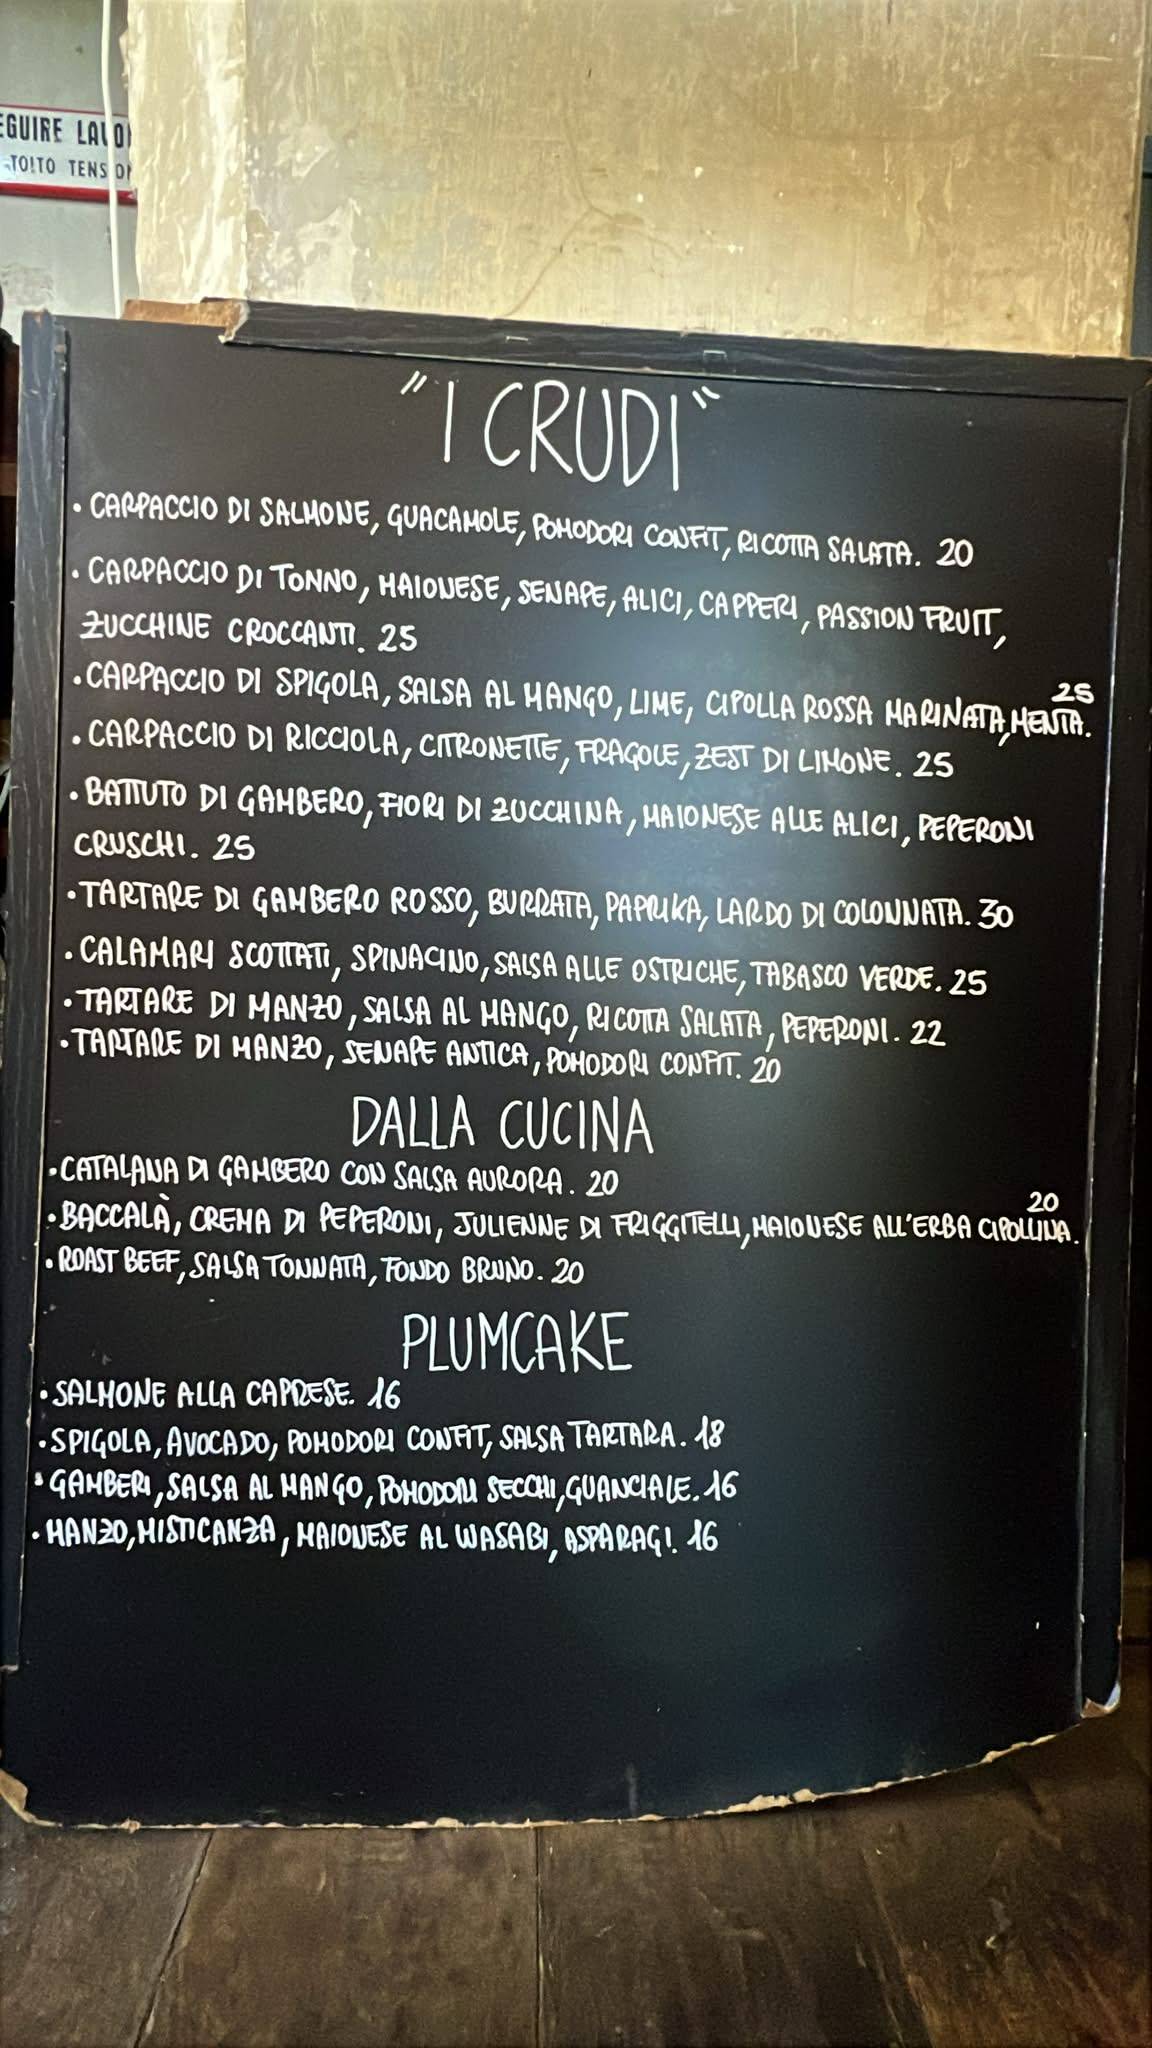 EGUIRE LAVO
TOLTO TENSIO
"I CRUDI"
• CARPACCIO DI SALMONE, GUACAMOLE, POMODORI CONFIT, RICOTTA SALATA. 20
• CARPACCIO DI TONNO, MAIONESE, SENAPE, ALICI, CAPPERI, PASSION FRUIT,
ZUCCHINE CROCCANTI. 25
• CARPACCIO DI SPIGOLA, SALSA AL MANGO, LIME, CIPOLLA ROSSA MARINATA, MENTA. 25
• CARPACCIO DI RICCIOLA, CITRONETTE, FRAGOLE, ZEST DI LIMONE. 25
• BATTUTO DI GAMBERO, FIORI DI ZUCCHINA, MAIONESE ALLE ALICI, PEPERONI
CRUSCHI. 25
• TARTARE DI GAMBERO ROSSO, BURRATA, PAPRIKA, LARDO DI COLONNATA. 30
• CALAMARI SCOTTATI, SPINACINO, SALSA ALLE OSTRICHE, TABASCO VERDE. 25
• TARTARE DI MANZO, SALSA AL MANGO, RICOTTA SALATA, PEPERONI. 22
• TARTARE DI MANZO, SENAPE ANTICA, POMODORI CONFIT. 20
DALLA CUCINA
• CATALANA DI GAMBERO CON SALSA AURORA. 20
• BACCALÀ, CREMA DI PEPERONI, JULIENNE DI FRIGGITELLI, MAIONESE ALL'ERBA CIPOLLINA. 20
• ROAST BEEF, SALSA TONNATA, FONDO BRUNO. 20
PLUMCAKE
• SALMONE ALLA CAPRESE. 16
• SPIGOLA, AVOCADO, POMODORI CONFIT, SALSA TARTARA. 18
• GAMBERI, SALSA AL MANGO, POMODORI SECCHI, GUANCIALE. 16
• MANZO, MISTICANZA, MAIONESE AL WASABI, ASPARAGI. 16